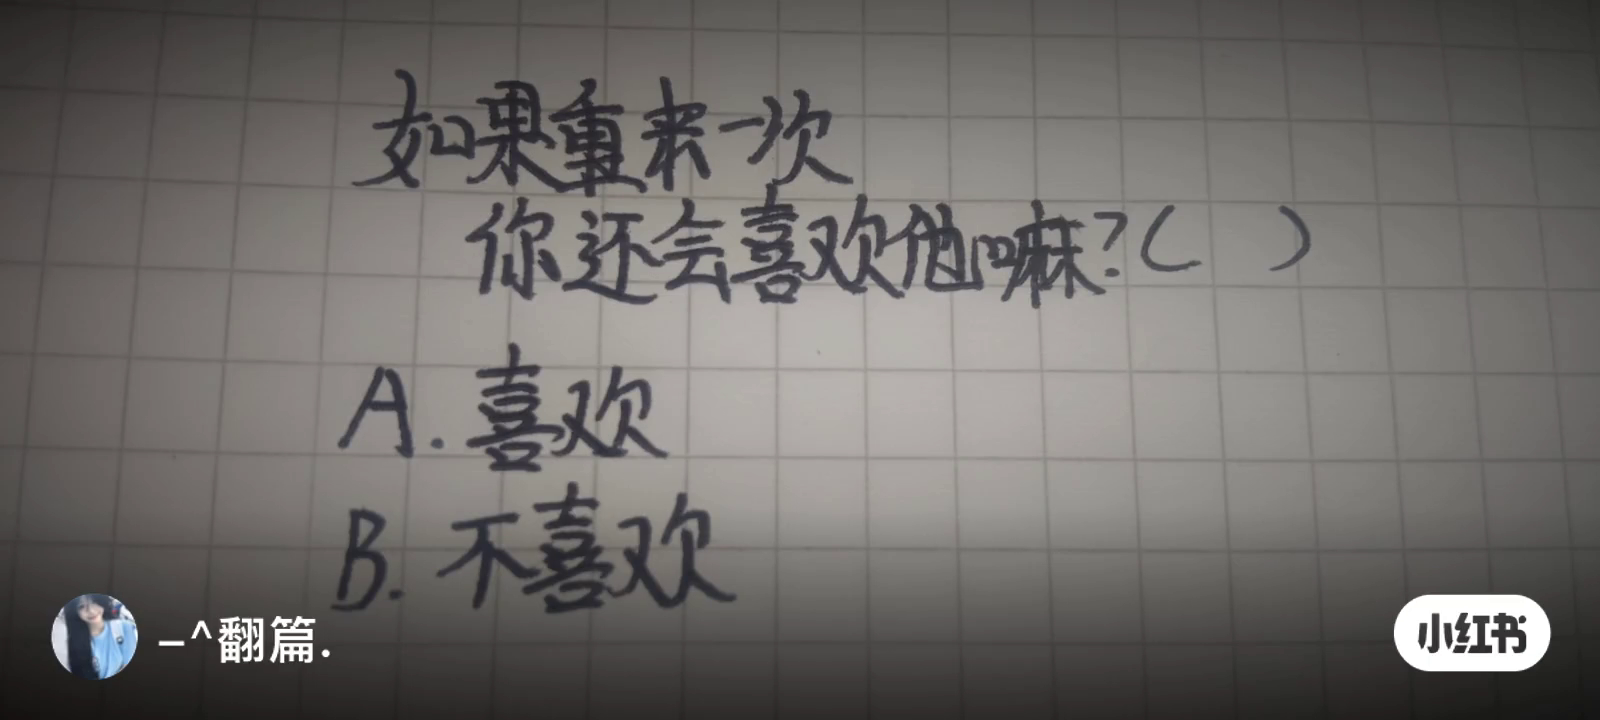 如果重来一次
你还会喜欢他嘛?( )
A.喜欢
B.不喜欢
-^翻篇.
小红书